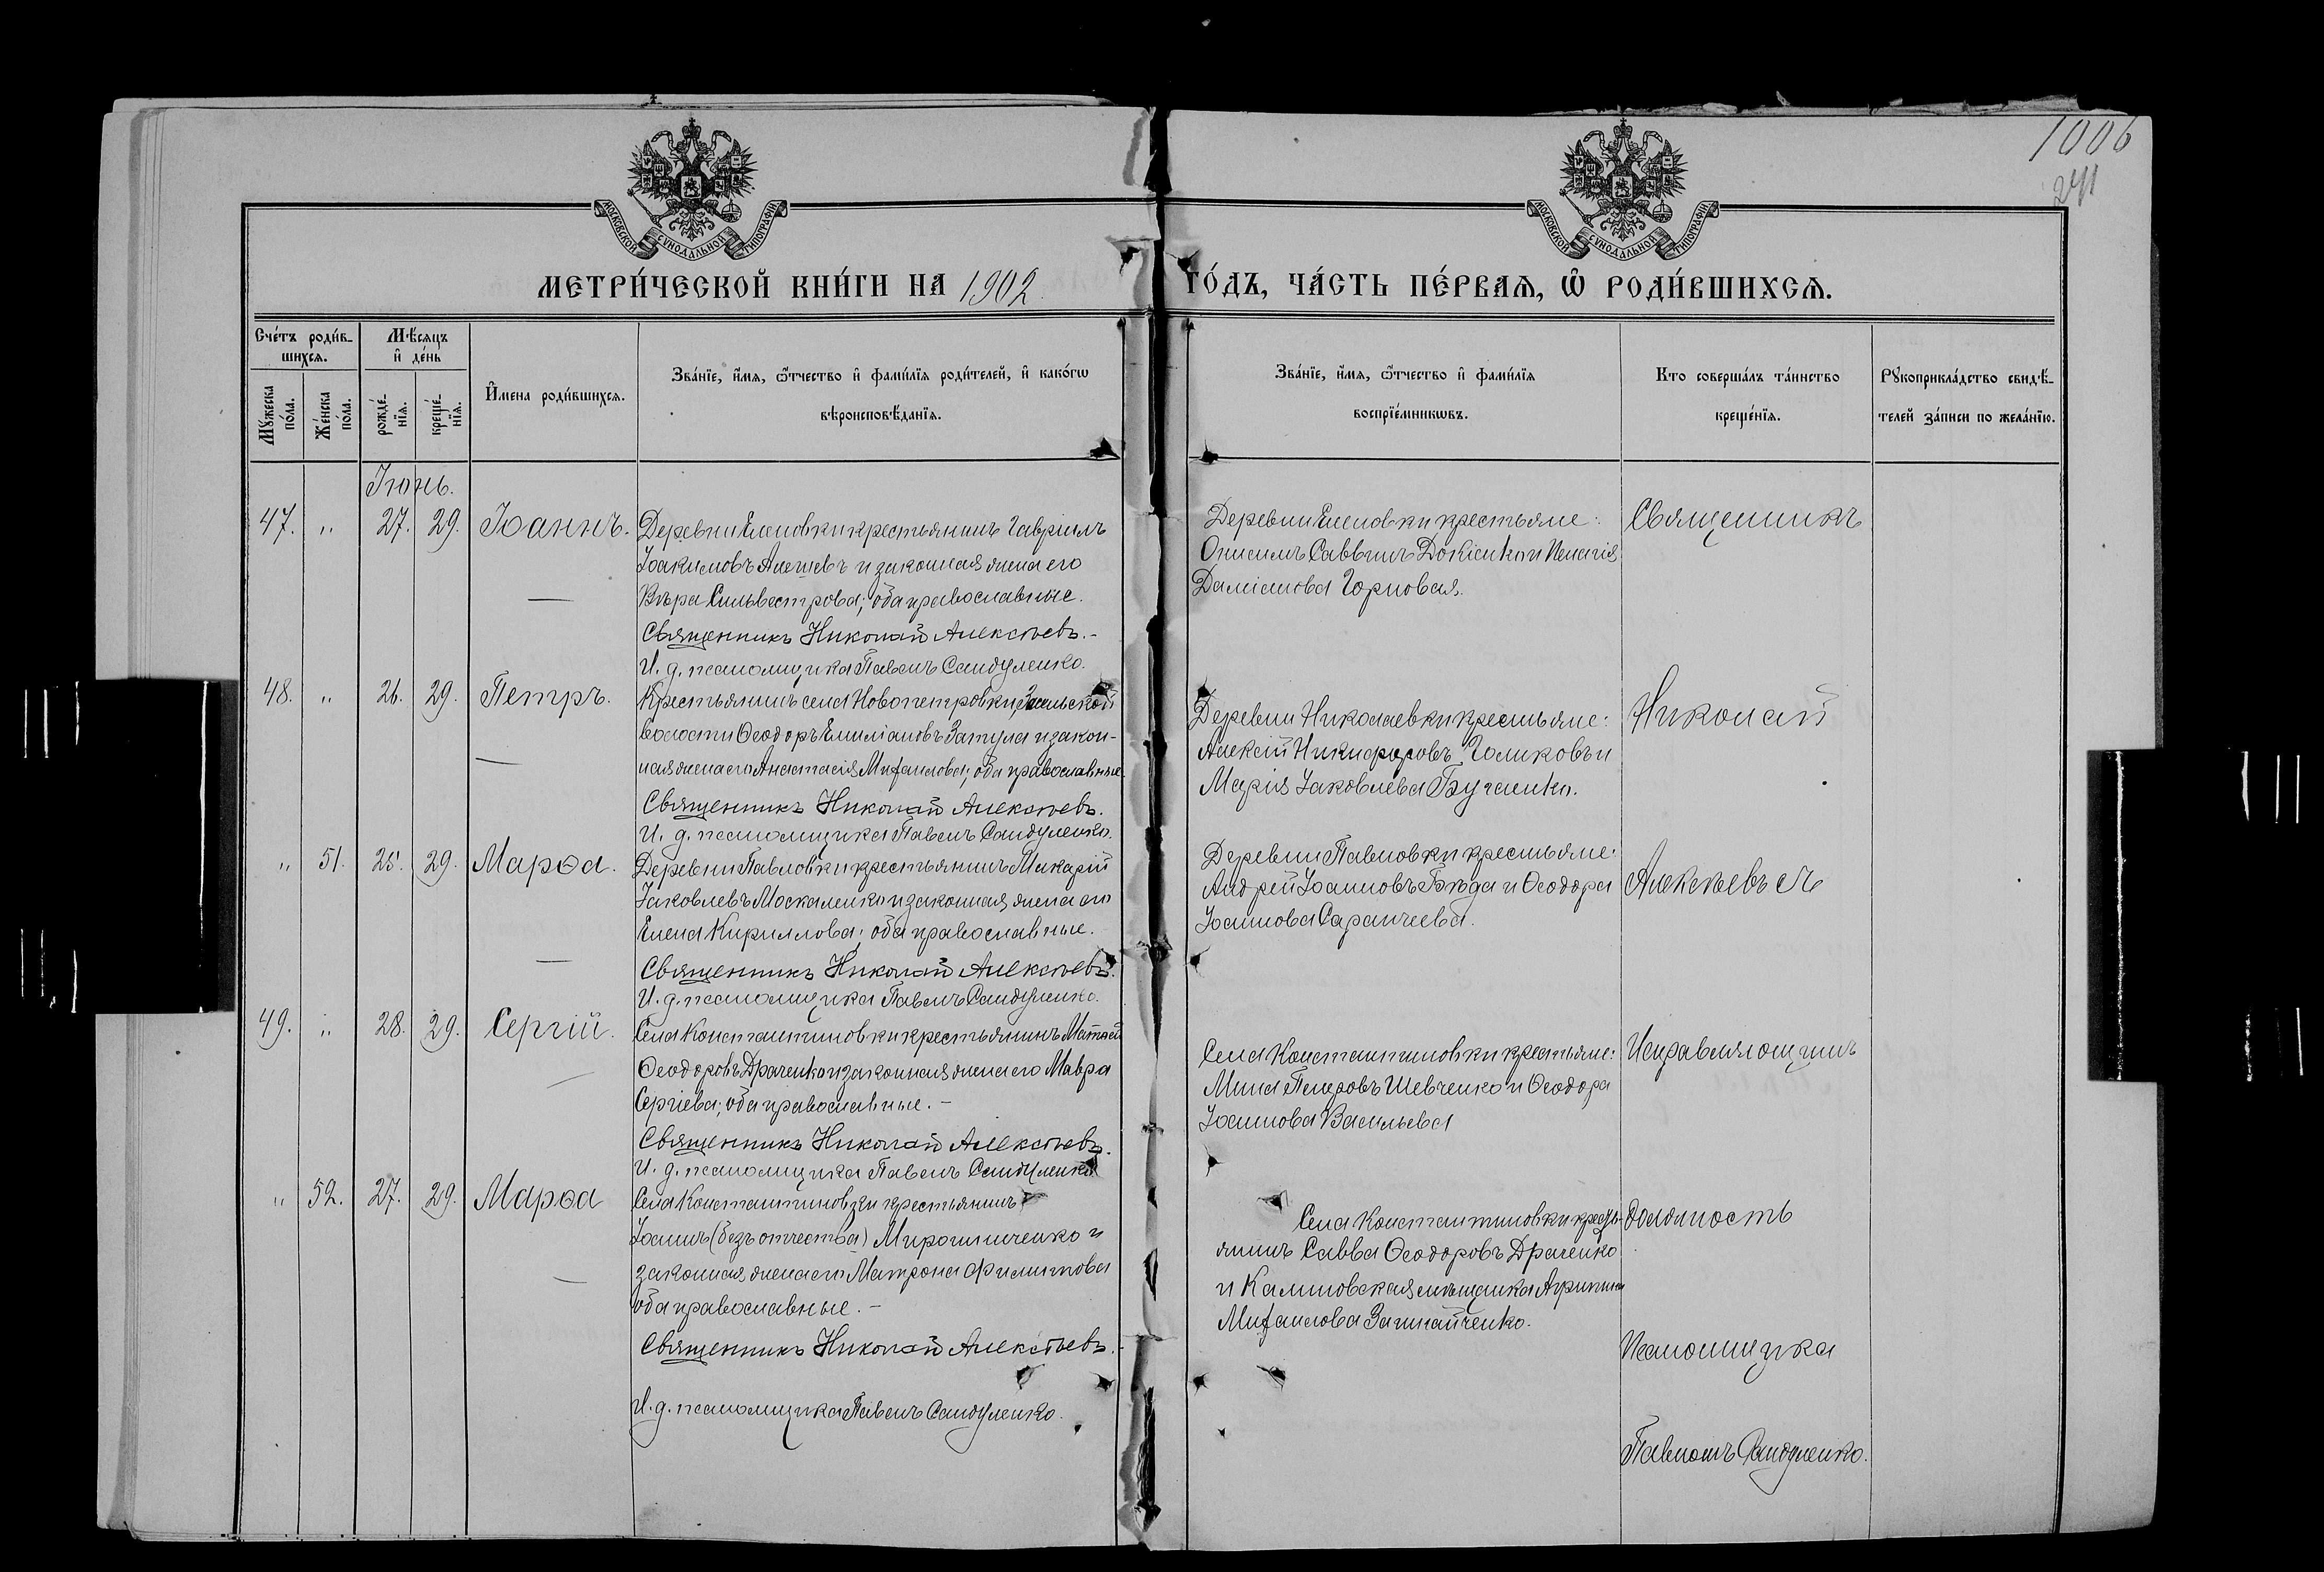 1006
241
МОСКОВСКОЙ СѴНОДАЛЬНОЙ ТИПОГРАФІИ
МОСКОВСКОЙ СѴНОДАЛЬНОЙ ТИПОГРАФІИ
МЕТРИ́ЧЕСКОЙ КНИ́ГИ НА 1902 ГО́ДЪ, ЧА́СТЬ ПЕ́РВАѦ, Ѽ РОДИ́ВШИХСѦ.
Сче́тъ роди́в-
шихсѧ.
Мѣ́сѧцъ
и҆ де́нь
Мꙋ́жеска
по́ла.
Же́нска
по́ла.
рожде́-
нїѧ.
креще́-
нїѧ.
И҆мена роди́вшихсѧ.
Зва́нїе, и҆́мѧ, ѻ҆́тчество и҆ фами́лїѧ роди́телей, и҆ како́гѡ
вѣроисповѣ́данїѧ.
Зва́нїе, и҆́мѧ, ѻ҆́тчество и҆ фами́лїѧ
воспрїе́мникѡвъ.
Кто соверша́лъ та́инство
креще́нїѧ.
Рꙋкоприкла́дство свидѣ́-
телей за́писи по жела́нїю.
Іюнь.
47. " 27. 29. Іоаннъ.
Деревни Еленовки крестьянинъ Гавріилъ
Іоакимовъ Алешевъ и законная жена его
Вѣра Сильвестрова; оба православные.
Священникъ Николай Алексѣевъ.-
И. д. псаломщика Павелъ Сандуленко.
Деревни Еленовки крестьяне:
Онисимъ Саввинъ Докіенко и Пелагія
Даміанова Горновая.
Священникъ
48. " 26. 29. Петръ.
Крестьянинъ села Новопетровки,
волости Ѳеодоръ Емиліановъ Затула и закон-
ная жена его Анастасія Михаилова; оба православные.
Священникъ Николай Алексѣевъ.
И. д. псаломщика Павелъ Сандуленко.
Деревни Николаевки крестьяне:
Алексій Никифоровъ Голиковъ и
Марія Іаковлева Бугаенко.
Николай
" 51. 25. 29. Марѳа.
Деревни Павловки крестьянинъ Макарій
Іаковлевъ Москаленко и законная жена его
Елена Кириллова; оба православные.
Священникъ Николай Алексѣевъ.
И. д. псаломщика Павелъ Сандуленко.
Деревни Павловки крестьяне:
Андрей Іоанновъ Бѣда и Ѳеодора
Іоаннова Саранчеева.
Алексѣевъ съ
49. " 28. 29. Сергій.
Села Константиновки крестьянинъ Матѳей
Ѳеодоровъ Драченко и законная жена его Мавра
Сергіева; оба православные.-
Священникъ Николай Алексѣевъ.
И. д. псаломщика Павелъ Сандуленко
Села Константиновки крестьяне:
Мина Петровъ Шевченко и Ѳеодора
Іоаннова Васильева
Исправляющимъ
" 52. 27. 29. Марѳа
Села Константиновки крестьянинъ
Іоаннъ (безъ отчества) Мирошниченко и
законная жена его Матрона Филиппова
оба православные.-
Священникъ Николай Алексѣевъ.
И. д. псаломщика Павелъ Сандуленко.
Села Константиновки кресть-
янинъ Савва Ѳеодоровъ Драченко
и Калиновская мѣщанка Агрипина
Михаилова
должность
Псаломщика
Павломъ Сандуленко.